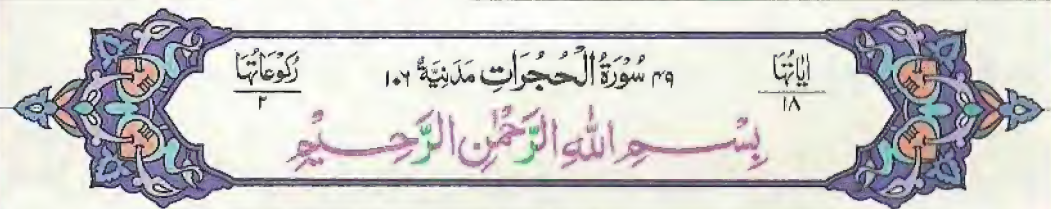 اٰيَاتُهَا ١٨
٤٩ سُوْرَةُ الْحُجُرَاتِ مَدَنِيَّةٌ ١٠٦
رُكُوْعَاتُهَا ٢
بِسْمِ اللهِ الرَّحْمٰنِ الرَّحِيْمِ